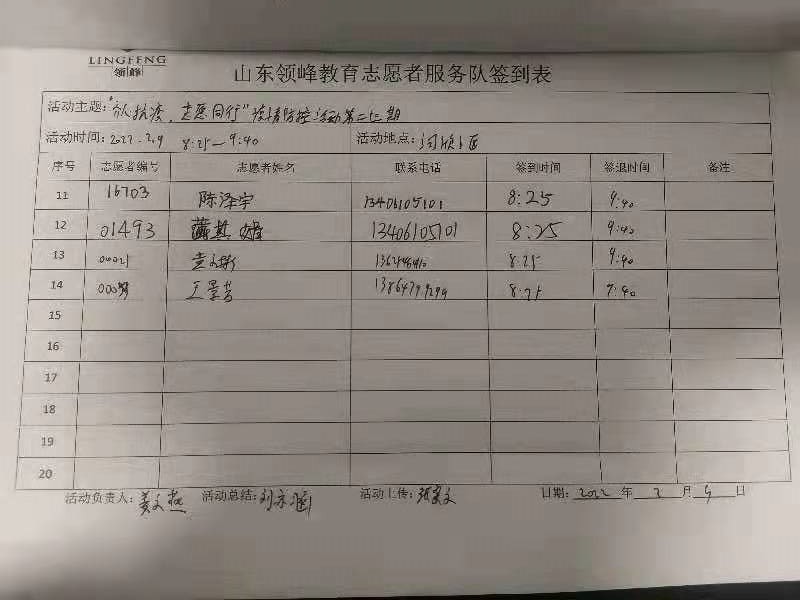 LINGFENG
领峰
山东领峰教育志愿者服务队签到表
活动主题:"众抗疫,志愿同行"疫情防控活动第二十三期
活动时间:2022.2.9 8:25—9:40 活动地点:
序号 志愿者编号 志愿者姓名 联系电话 签到时间 签退时间 备注
11 16703 陈泽宇 13406105101 8:25 9:40
12 01493 13406105101 8:25 9:40
13 00021 8:25 9:40
14 王景芳 8:25 9:40
15
16
17
18
19
20
活动负责人:姜文燕 活动总结:刘亦涵 活动上传: 日期:2022年2月9日